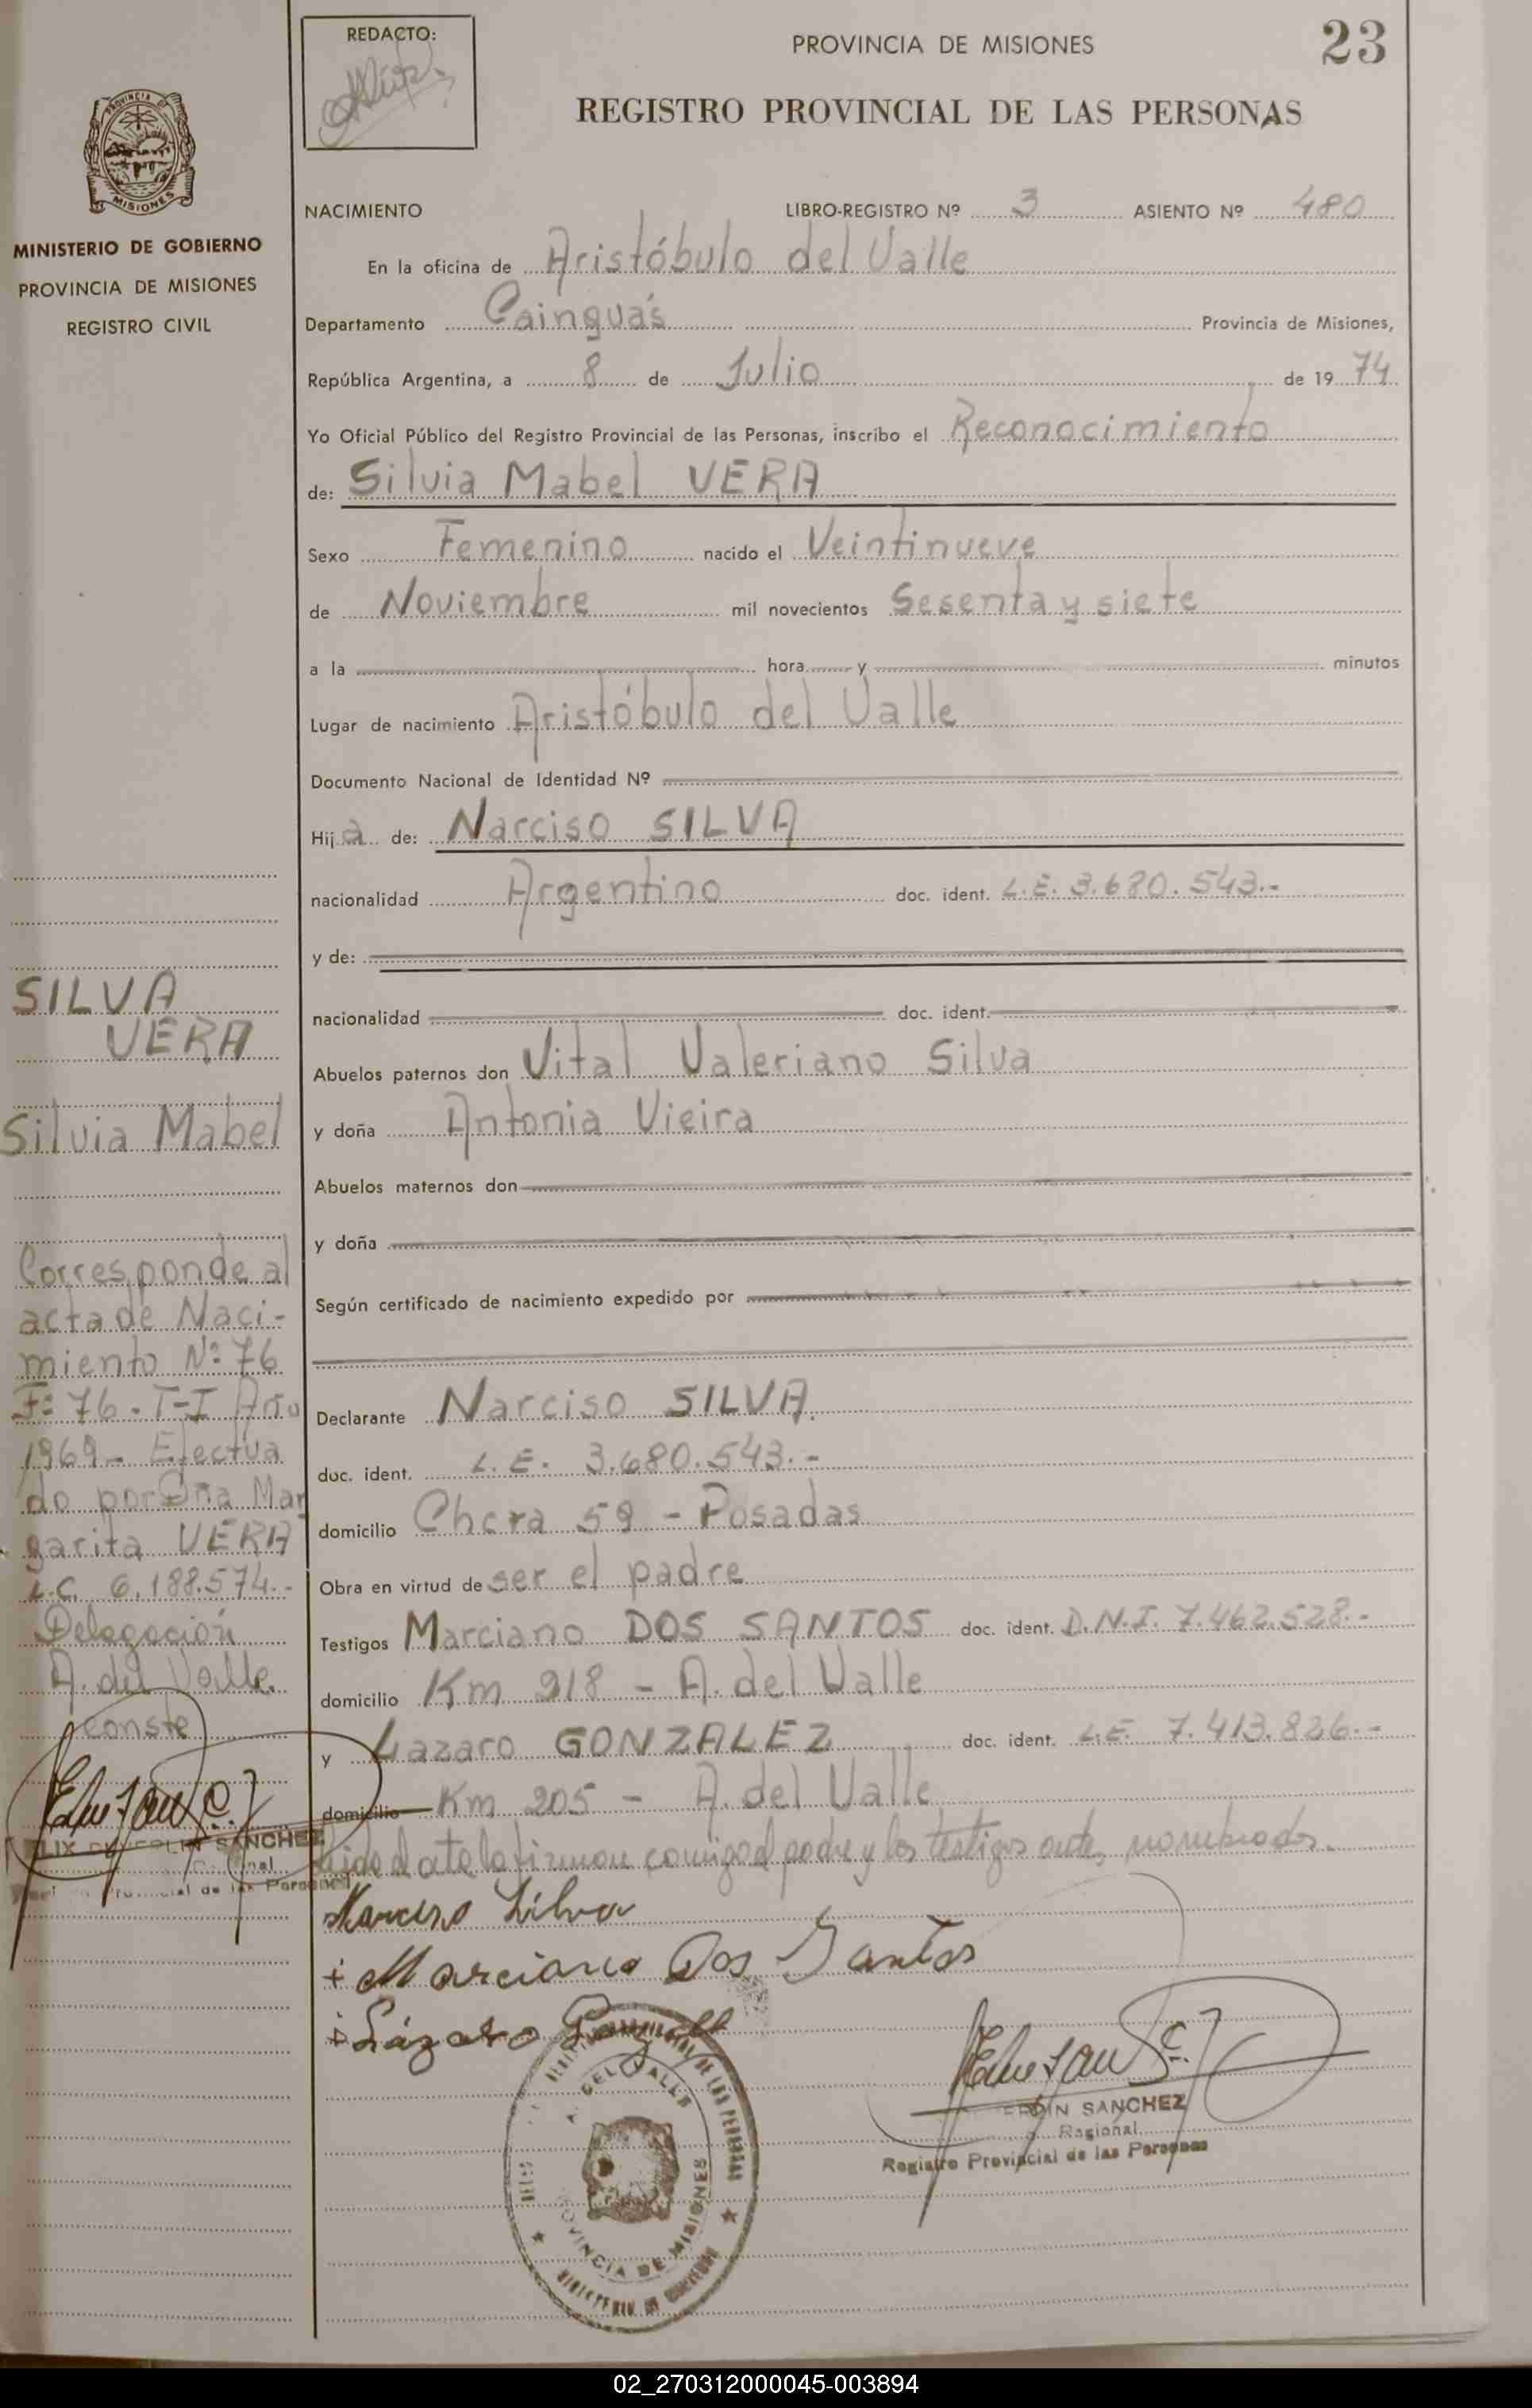 REDACTO:
PROVINCIA DE MISIONES
23
REGISTRO PROVINCIAL DE LAS PERSONAS
PROVINCIA
MISIONES
MINISTERIO DE GOBIERNO
PROVINCIA DE MISIONES
REGISTRO CIVIL
NACIMIENTO LIBRO-REGISTRO Nº 3 ASIENTO Nº 480
En la oficina de Aristóbulo del Valle
Departamento Cainguás Provincia de Misiones,
República Argentina, a 8 de Julio de 19 74
Yo Oficial Público del Registro Provincial de las Personas, inscribo el Reconocimiento
de: Silvia Mabel VERA
Sexo Femenino nacido el Veintinueve
de Noviembre mil novecientos Sesenta y siete
a la hora y minutos
Lugar de nacimiento Aristóbulo del Valle
Documento Nacional de Identidad Nº
Hij a de: Narciso SILVA
nacionalidad Argentino doc. ident. L.E. 3.680.543.-
y de:
nacionalidad doc. ident.
Abuelos paternos don Vital Valeriano Silva
y doña Antonia Vieira
Abuelos maternos don
y doña
Según certificado de nacimiento expedido por
Declarante Narciso SILVA.
doc. ident. L.E. 3.680.543.-
domicilio Chcra 59 - Posadas
Obra en virtud de ser el padre
Testigos Marciano DOS SANTOS doc. ident. D.N.I. 7.462.528.-
domicilio Km 218 - A. del Valle
y Lazaro GONZALEZ doc. ident. L.E. 7.413.826.-
domicilio Km 205 - A. del Valle
Leida el acta la firman conmigo el padre y los testigos antes nombrados.
Narciso Silva
+ Marciano Dos Santos
+ Lázaro
SILVA
VERA
Silvia Mabel
Corresponde al
acta de Naci-
miento Nº 76
Fº 76 - T-I Año
1969 - Efectua
do por Dña Mar
garita VERA
L.C. 6.188.574.-
Delegación
A. del Valle.
conste
SANCHEZ
de las Personas
SANCHEZ
Regional
Registro Provincial de las Personas
DE LAS PERSONAS
DEL VALLE
PROVINCIA DE MISIONES
02_270312000045-003894